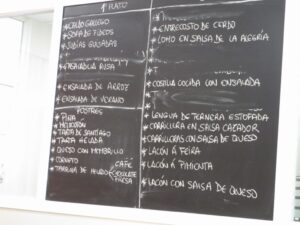 1º PLATO
* CALDO GALLEGO
* SOPA DE FIDEOS
* JUDIAS GUISADAS
* ENSALADILLA RUSA
* ENSALADA DE ARROZ
* ENSALADA DE VERANO
POSTRES
* PIÑA
* MELOCOTON
* TARTA DE SANTIAGO
* TARTA HELADA
* QUESO CON MEMBRILLO
* CORNETO
* TARRINA DE HELADO
CAFÉ
CHOCOLATE
FRESA
* ENTRECOSTO DE CERDO
* LOMO EN SALSA DE LA ALEGRÍA
* COSTILLA COCIDA CON ENSALADA
* LENGUA DE TERNERA ESTOFADA
* CARRILLERA EN SALSA CAZADOR
* CARRILLERAS CON SALSA DE QUESO
* LACÓN Á FEIRA
* LACÓN Á PIMIENTA
* LACÓN CON SALSA DE QUESO